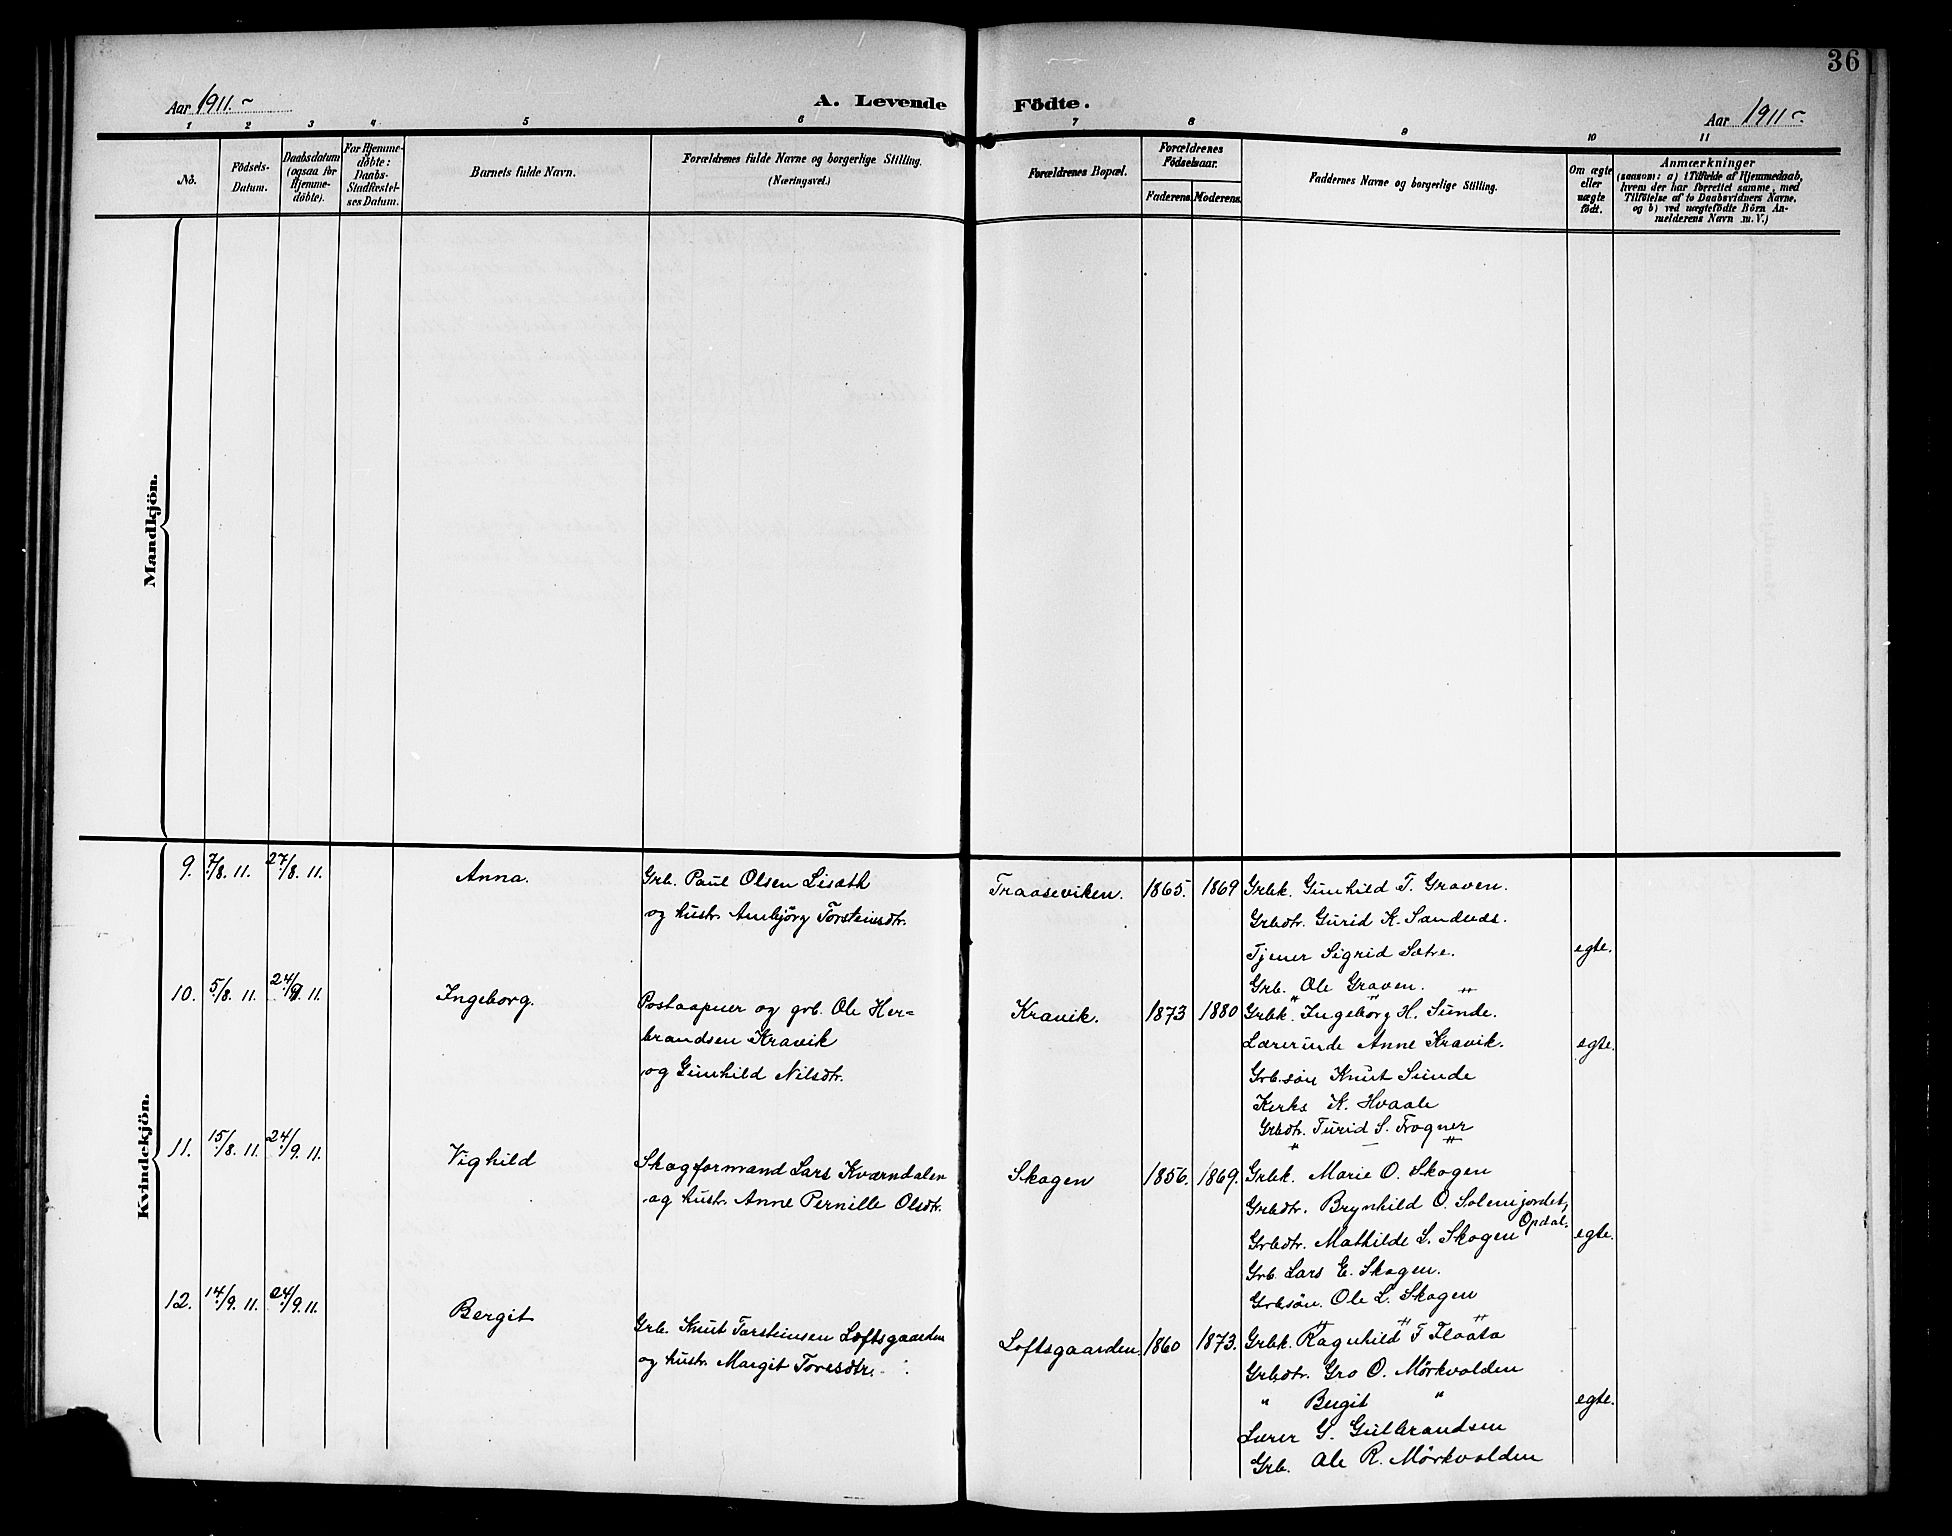 36
Aar 1911.
A. Levende Födte.
Aar 1911
1 2 3 4 5 6 7 8 9 10 11
No.
Födsels-Datum.
Daabsdatum (ogsaa for Hjemme-döbte).
For Hjemme-döbte: Daabs-Stadfæstel-ses Datum.
Barnets fulde Navn.
Forældrenes fulde Navne og borgerlige Stilling.
(Næringsvei.)
Forældrenes Bopæl.
Forældrenes Födselsaar.
Faderens. Moderens.
Faddernes Navne og borgerlige Stilling.
Om ægte eller uægte födt.
Anmærkninger
(saasom: a) i Tilfælde af Hjemmedaab,
hvem der har forrettet samme, med
Tilföielse af to Daabsvidners Navne,
og b) ved uægtefödte Börn An-
melderens Navn m. V.)
Mandkjön.
Kvindekjön.
9. 7/8. 11. 27/8. 11. Anna. Grb. Paul Olsen Lisæth
og hustr. Ambjörg Torsteinsdtr.
Traaseviken. 1865. 1869 Grbk. Gunhild T. Graven.
Grbdtr. Gurid K. Sandnes.
Tjener Sigrid Sætre. egte.
Grb. Ole Graven.
10. 5/8. 11. 24/9. 11. Ingeborg. Postaapner og grb. Ole Her=
brandsen Kravik
og Gunhild Nilsdtr.
Kravik. 1873 1880 Grbk. Ingeborg H. Sunde.
Lærerinde Anne Kravik. egte.
Grb.sön Knut Sunde
Kirks. K. Hvaale
Grbdtr. Turid S. Frogner
11. 15/8. 11. 24/9. 11. Vighild Skogformand Lars Kværndalen
og hustr. Anne Pernille Olsdtr.
Skogen 1856. 1869. Grbk. Marie O. Skogen
Grbdtr. Brynhild O. Solemjordet,
Opdal.
Grbdtr. Mathilde L. Skogen egte.
Grb. Lars E. Skogen.
Grbsön. Ole L. Skogen
12. 14/9. 11. 24/9. 11. Bergit Grb. Knut Torsteinsen Loftsgaarden
og hustr. Margit Toresdtr.
Loftsgaarden. 1860 1873. Grbk. Ragnhild T Flaata
Grbdtr. Gro O. Mörkvolden
" Bergit " egte.
Lærer G. Gulbrandsen
Grb. Ole R. Mörkvolden